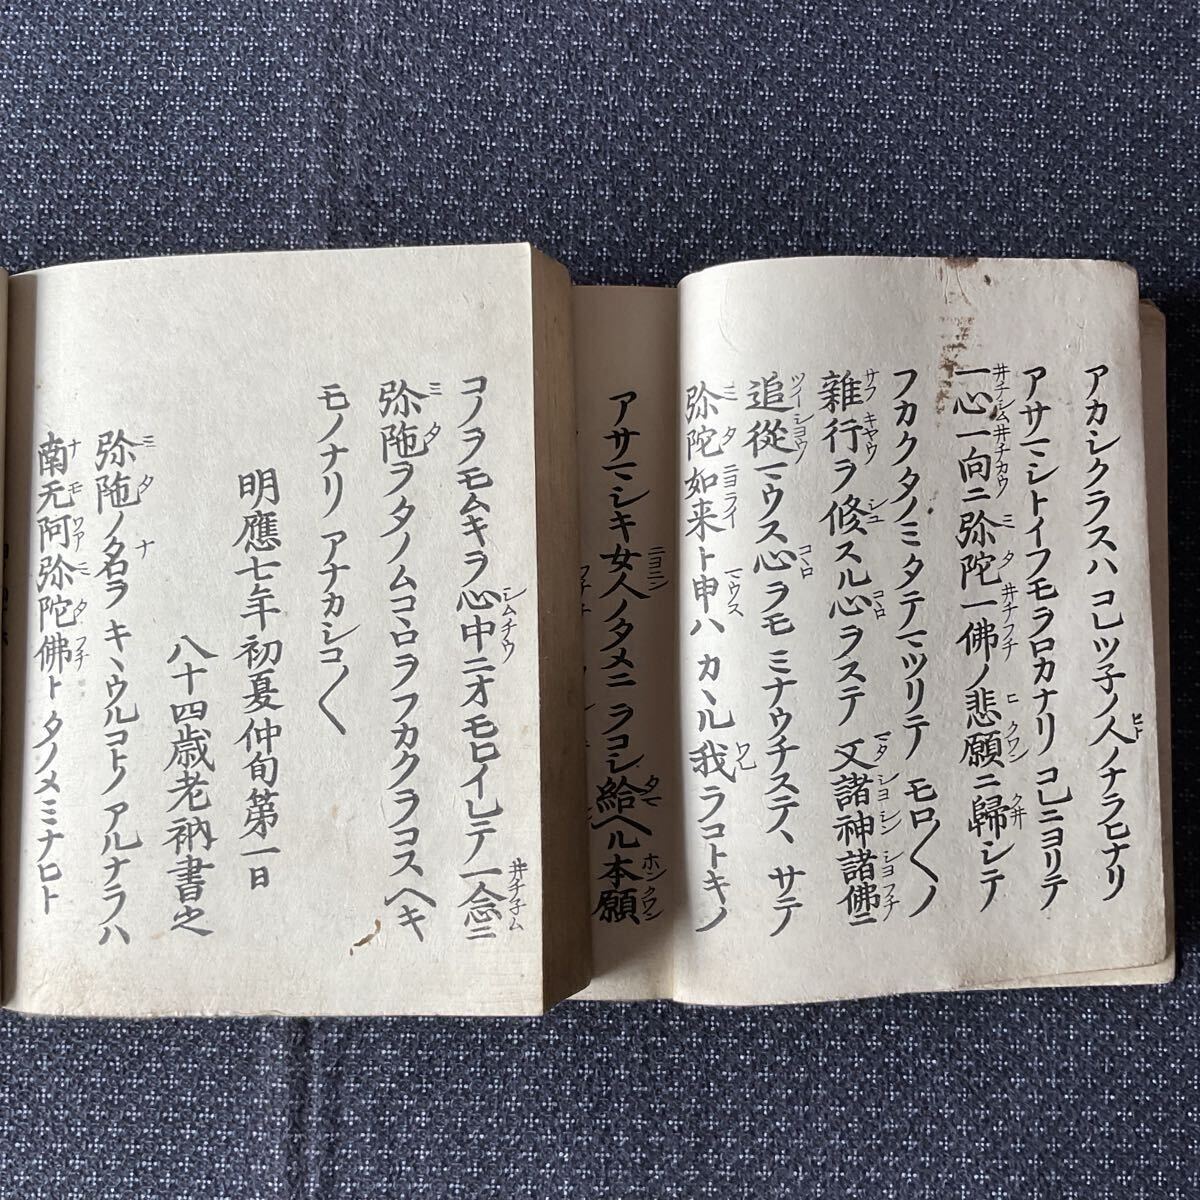 アカシクラスハ コレツ子ノ人ノナラヒナリ
アサマシトイフモヲロカナリ コレニヨリテ
一心一向ニ弥陀一佛ノ悲願ニ歸シテ
フカクタノミタテマツリテ モロ〱ノ
雜行ヲ修スル心ヲステ 又諸神諸佛ニ
追從マウス心ヲモ ミナウチステヽ サテ
弥陀如来ト申ハ カヽル我ラコトキノ
アサマシキ女人ノタメニ ヲコシ給ヘル本願
コノヲモムキヲ心中ニオモヒイレテ 一念ニ
弥陁ヲタノムコヽロヲフカクヲコスヘキ
モノナリ アナカシコ〱
明應七年初夏仲旬第一日
八十四歳老衲書之
弥陁ノ名ヲキヽウルコトノアルナラハ
南无阿弥陀佛トタノメミナヒト